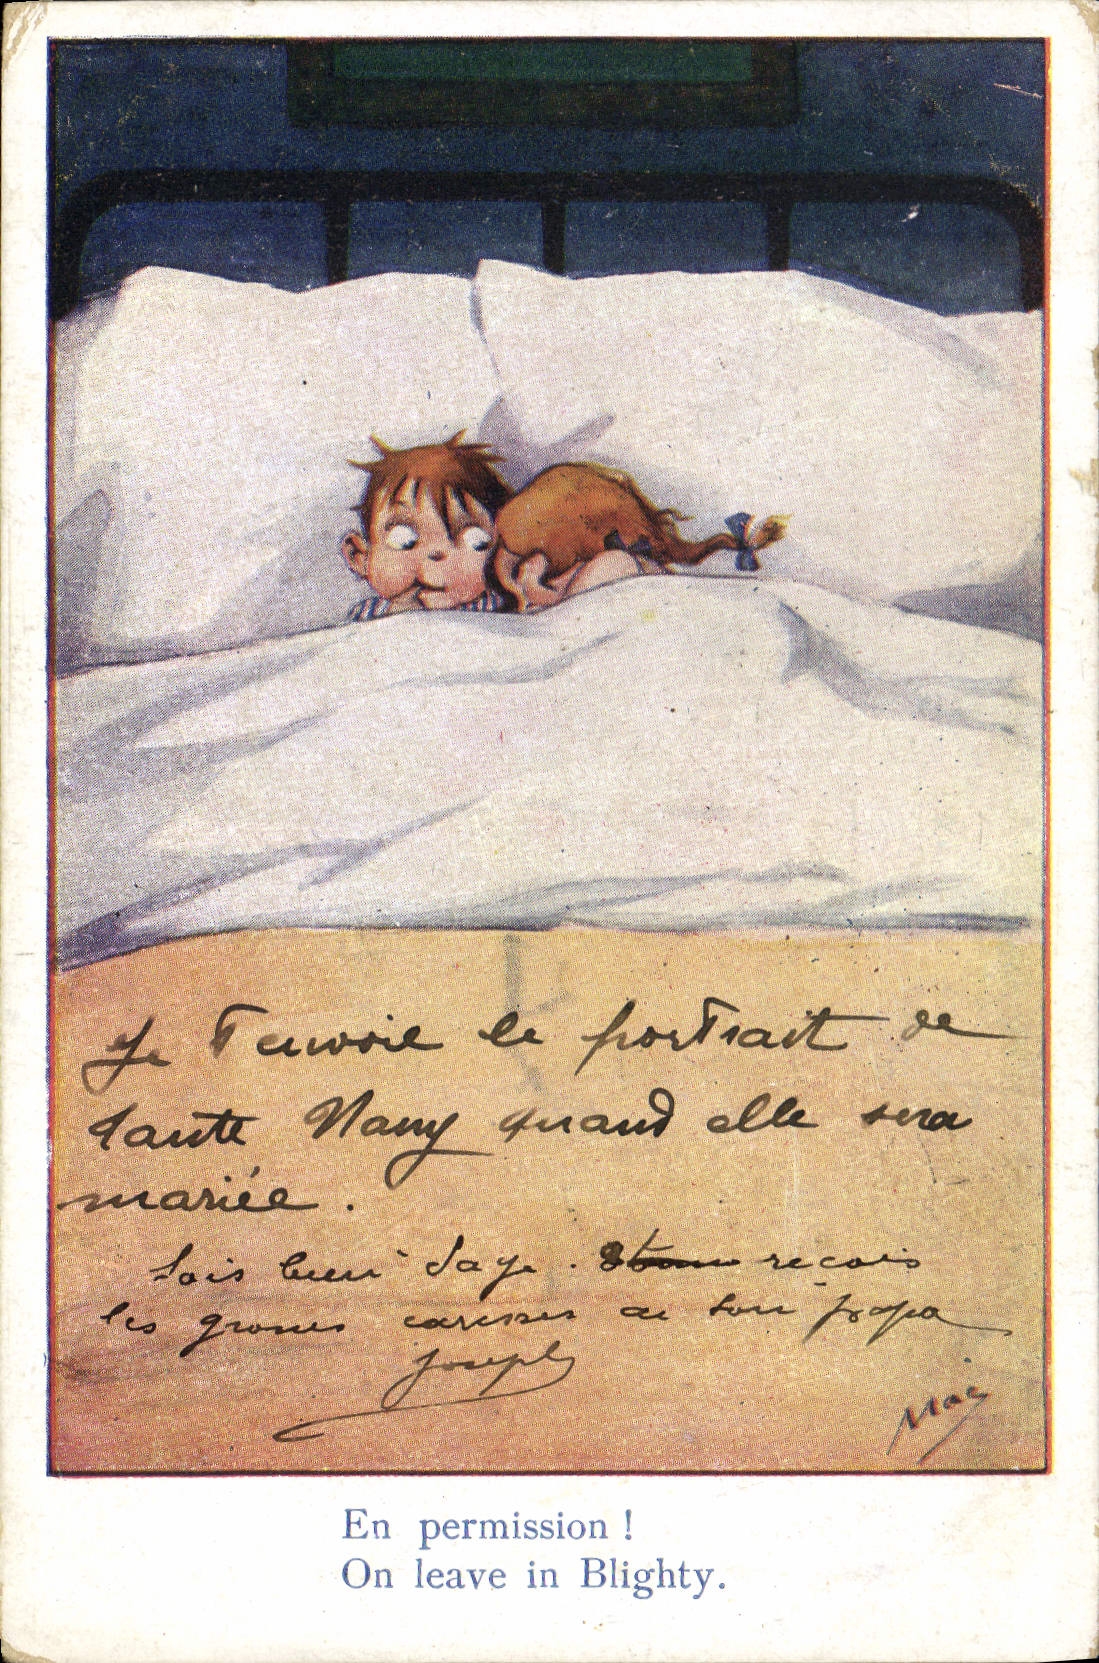 Je t'envoie le portrait de
tante Nany quand elle sera
mariée.
Sois bien sage. reçois
les grosses caresses de ton papa
Joseph
Mac
En permission !
On leave in Blighty.